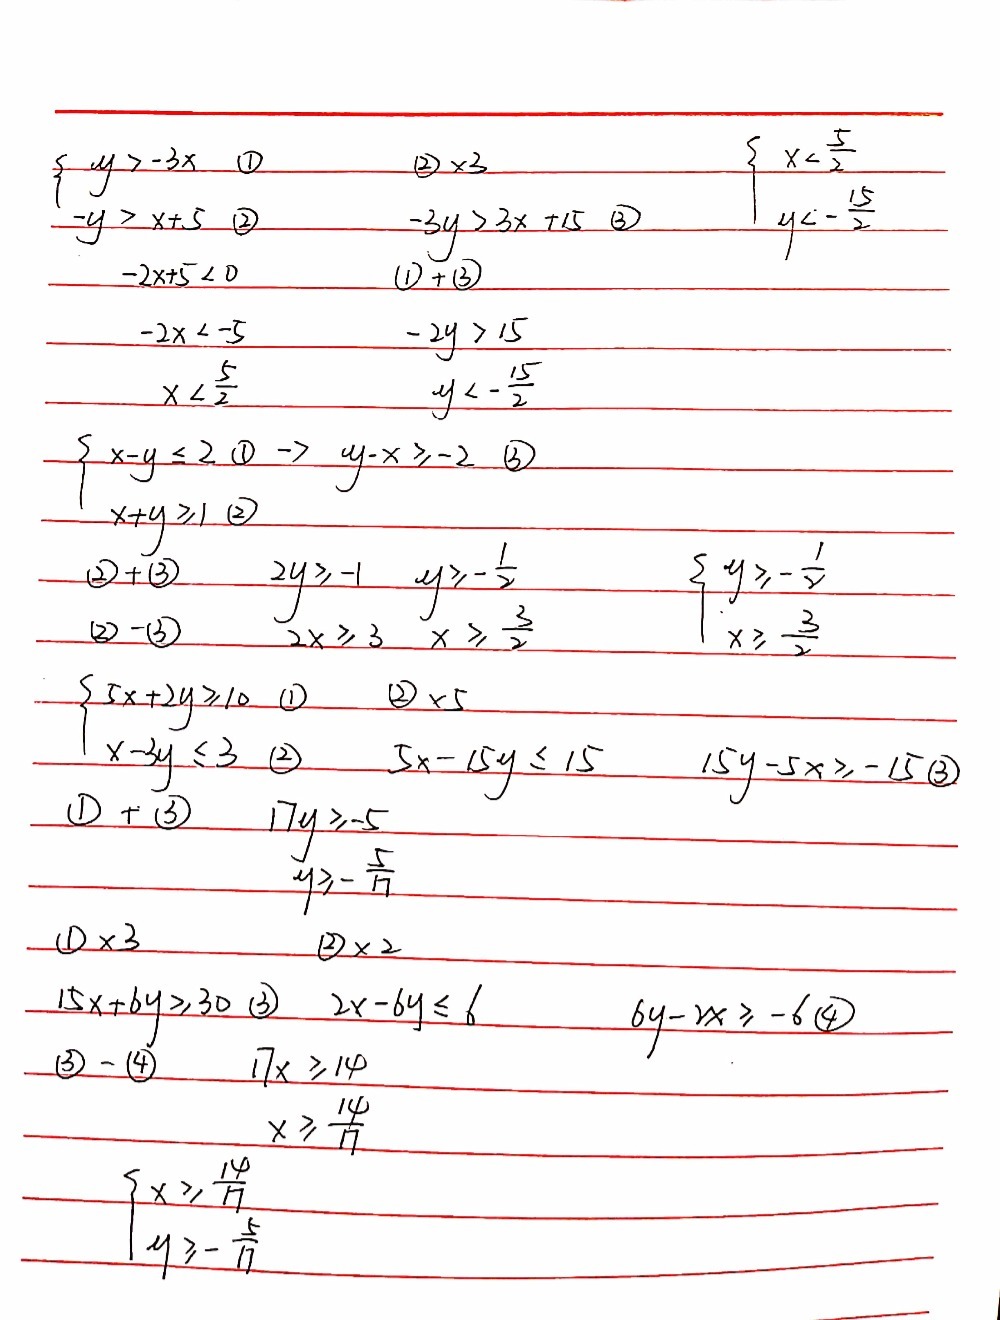 { y > -3x ① ② × 3 { x < 5/2
-y > x+5 ② -3y > 3x +15 ③ y < - 15/2
-2x+5 < 0 ① + ③
-2x < -5 -2y > 15
x < 5/2 y < - 15/2
{ x-y ≤ 2 ① -> y-x ⩾ -2 ③
x+y ⩾ 1 ②
② + ③ 2y ⩾ -1 y ⩾ - 1/2 { y ⩾ - 1/2
② - ③ 2x ⩾ 3 x ⩾ 3/2 x ⩾ 3/2
{ 5x+2y ⩾ 10 ① ② × 5
x-3y ≤ 3 ② 5x-15y ≤ 15 15y-5x ⩾ -15 ③
① + ③ 17y ⩾ -5
y ⩾ - 5/17
① × 3 ② × 2
15x+6y ⩾ 30 ③ 2x-6y ≤ 6 6y-2x ⩾ -6 ④
③ - ④ 17x ⩾ 14
x ⩾ 14/17
{ x ⩾ 14/17
y ⩾ - 5/17